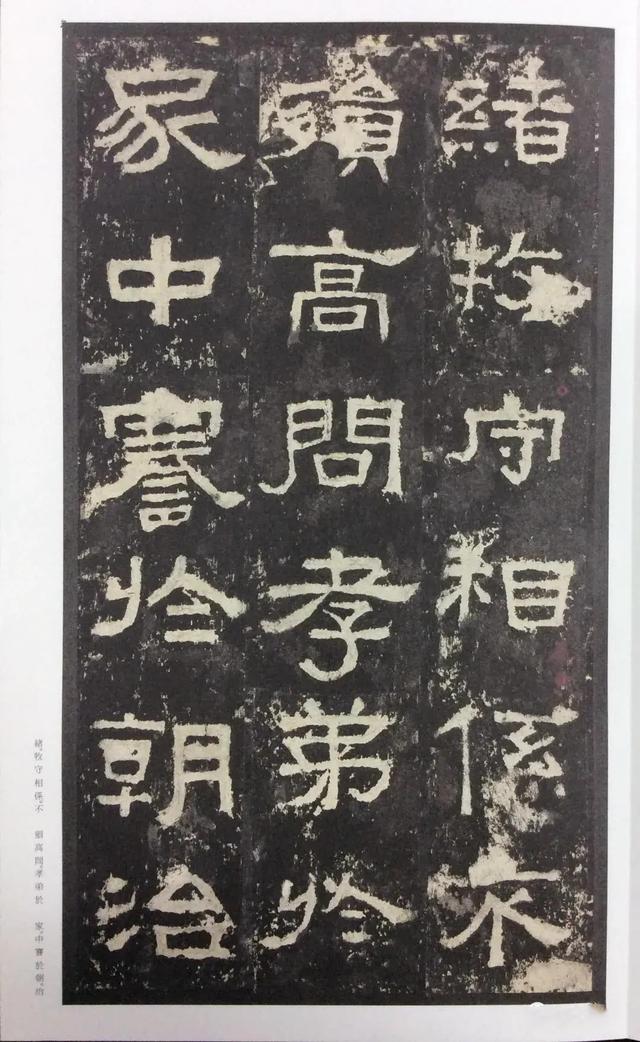 緒牧守相係不
殞高問孝弟於
家中謇於朝治
緒。牧守相係。不 殞高問。孝弟於 家。中謇於朝。治